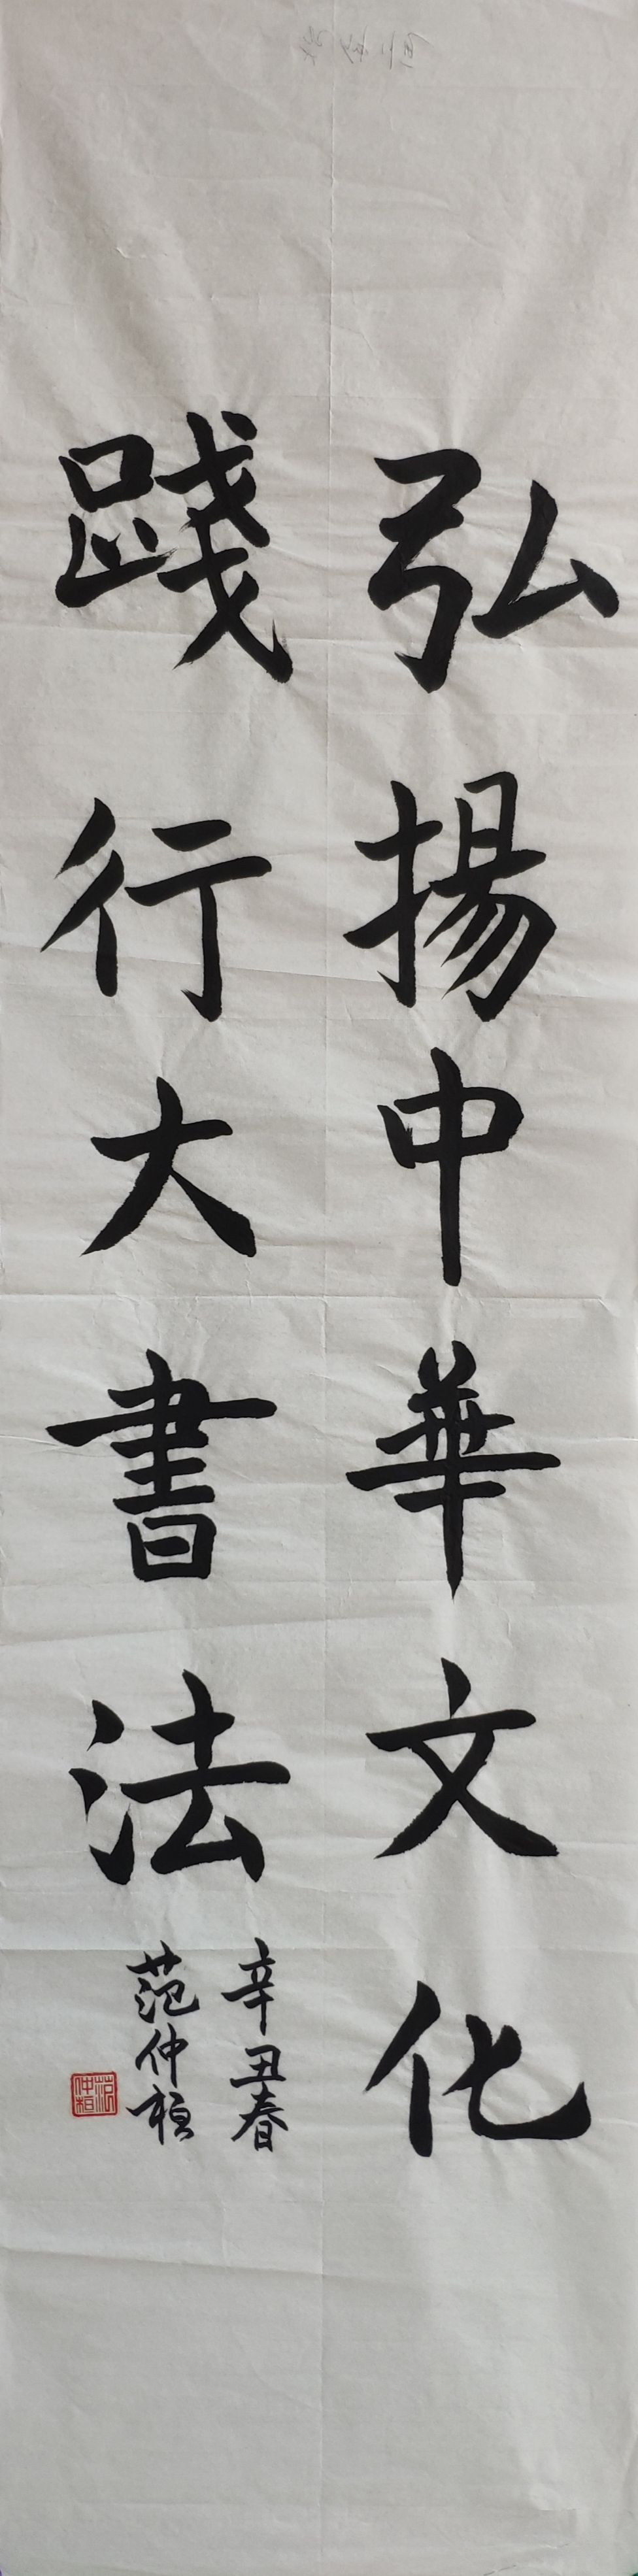 弘揚中華文化
踐行大書法
辛丑春
范仲楨